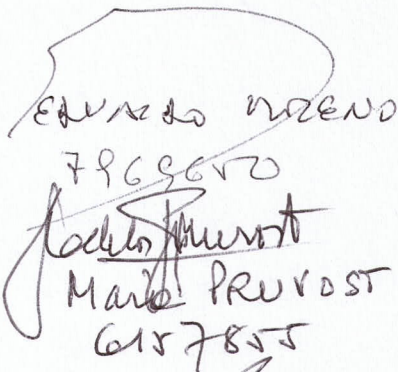 EDUARDO MORENO
7969650
María PRUVOST
6157855